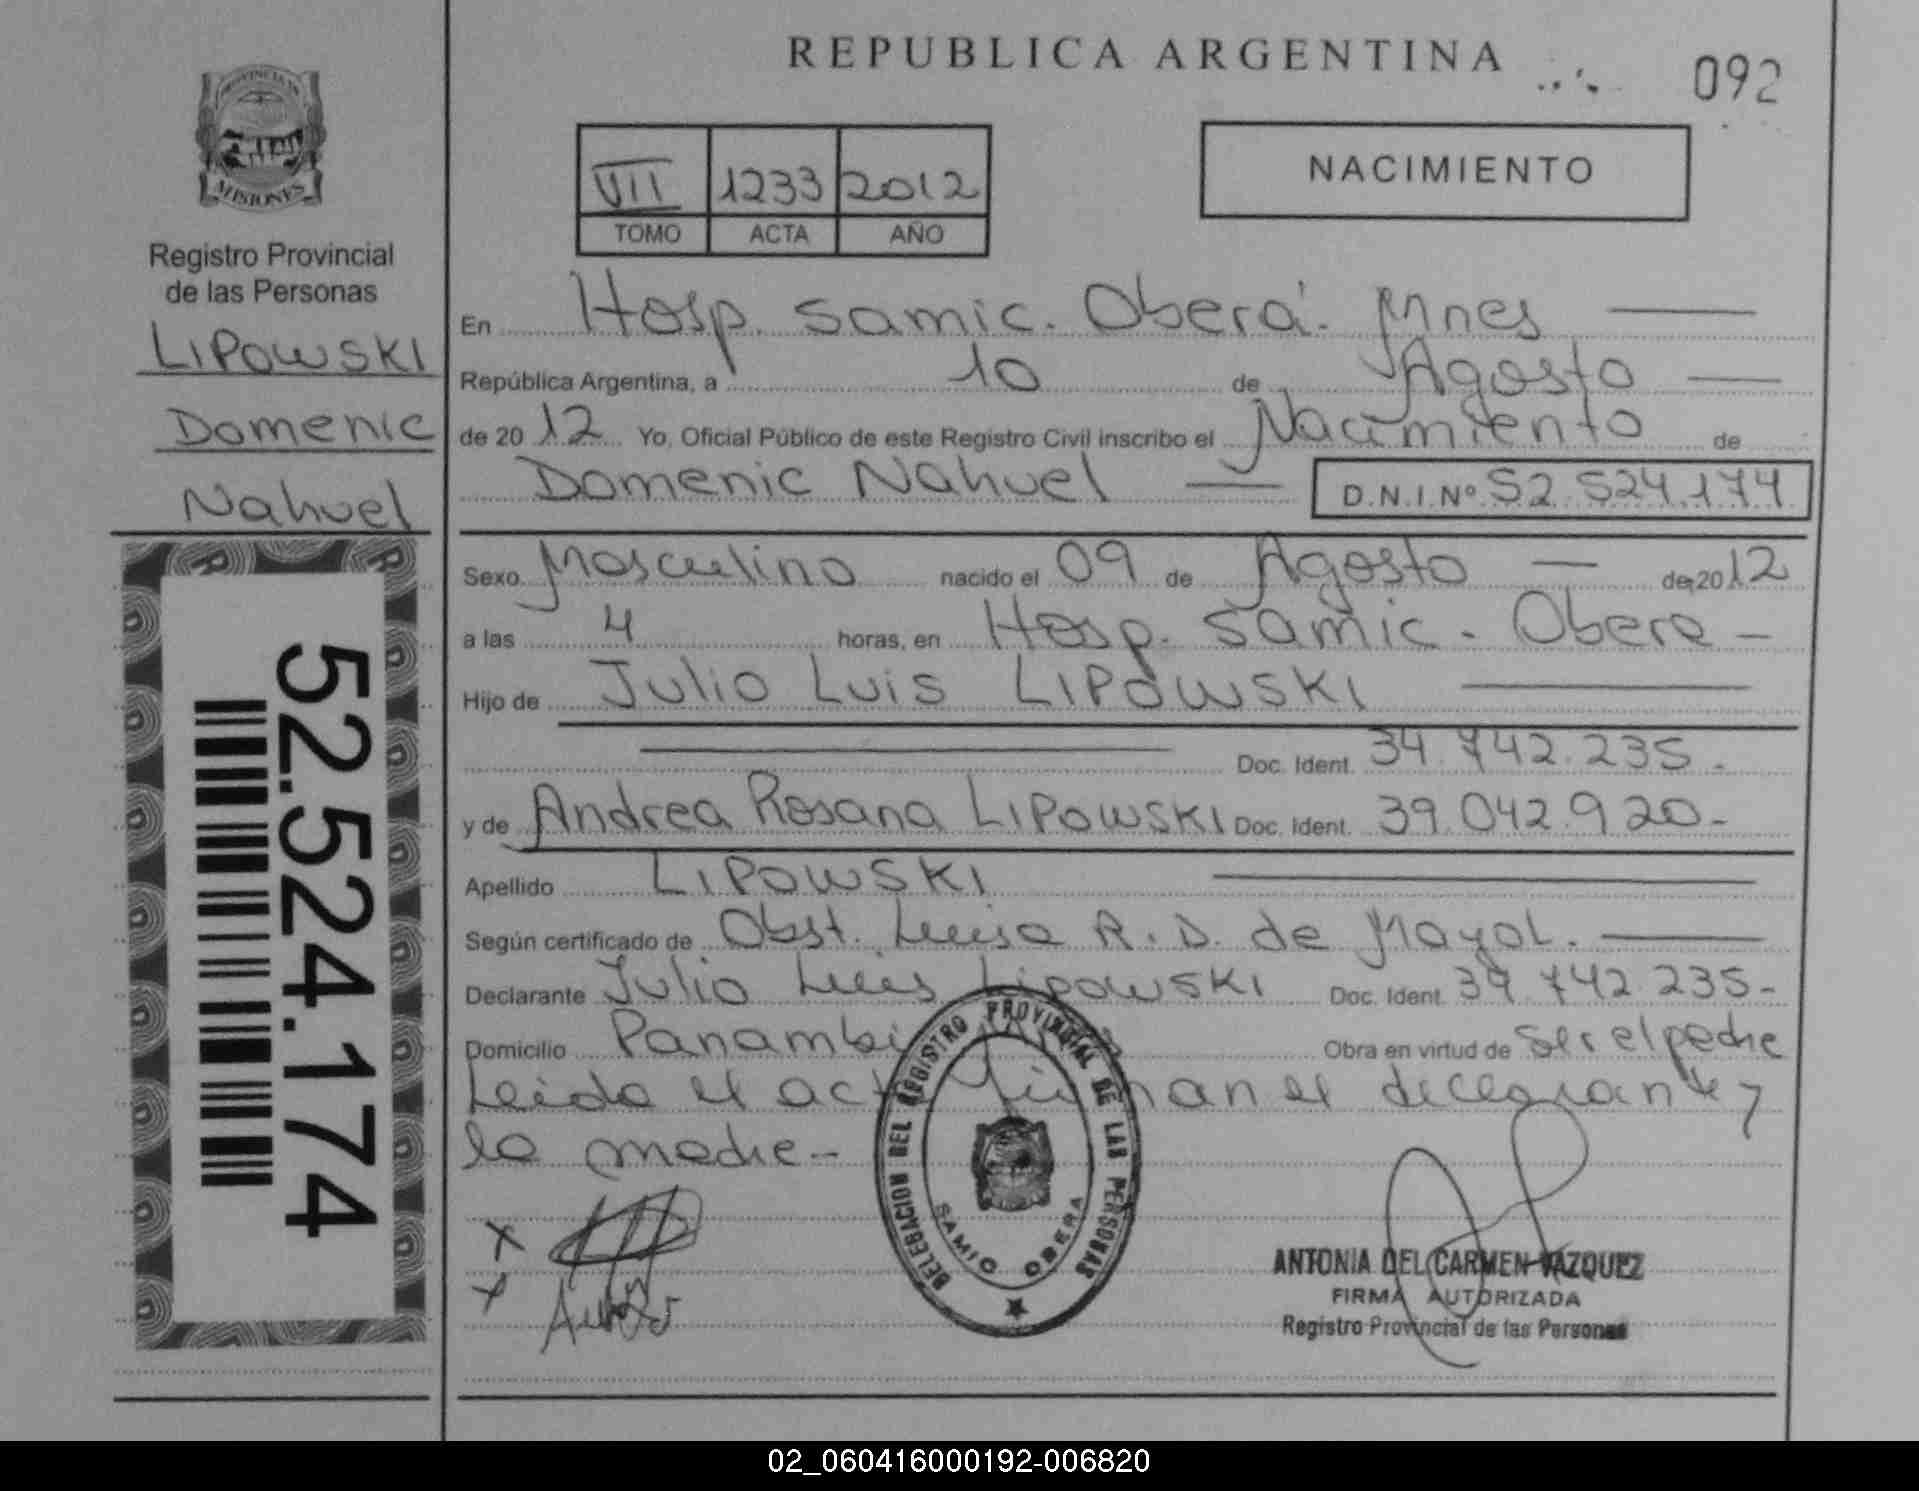 REPUBLICA ARGENTINA
092
PROVINCIA DE
MISIONES
Registro Provincial
de las Personas
LIPOWSKI
Domenic
Nahuel
52.524.174
VII 1233 2012
TOMO ACTA AÑO
NACIMIENTO
En Hosp. Samic. Oberá. Mnes
República Argentina, a 10 de Agosto
de 2012 Yo, Oficial Público de este Registro Civil inscribo el Nacimiento de
Domenic Nahuel D.N.I.Nº 52.524.174
Sexo Masculino nacido el 09 de Agosto de 2012
a las 4 horas, en Hosp. Samic. Obera
Hijo de Julio Luis LIPOWSKI
Doc. Ident. 34.742.235.
y de Andrea Rosana LIPOWSKI Doc. Ident. 39.042.920-
Apellido LIPOWSKI
Según certificado de Obst. Luisa R. D. de Mayol.
Declarante Julio Luis Lipowski Doc. Ident. 34.742.235-
Domicilio Panambi Obra en virtud de ser el padre
Leido el acta firman el declarante y
la madre-
DELEGACION DEL REGISTRO PROVINCIAL DE LAS PERSONAS
SAMIC OBERA
X
X
ANTONIA DEL CARMEN VAZQUEZ
FIRMA AUTORIZADA
Registro Provincial de las Personas
02_060416000192-006820